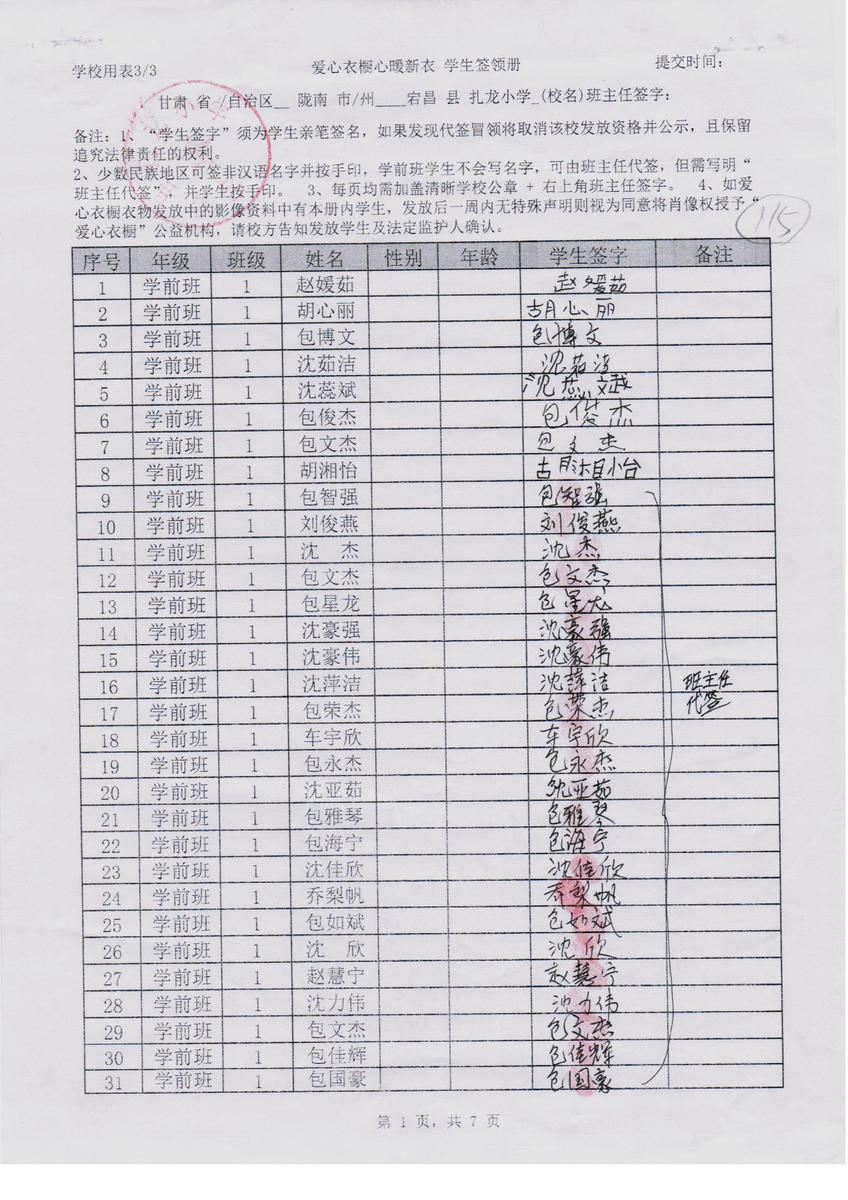 学校用表3/3 爱心衣橱心暖新衣 学生签领册 提交时间：
甘肃 省 /自治区__ 陇南 市/州____宕昌 县 扎龙小学_(校名)班主任签字：
备注：1、“学生签字”须为学生亲笔签名，如果发现代签冒领将取消该校发放资格并公示，且保留
追究法律责任的权利。
2、少数民族地区可签非汉语名字并按手印，学前班学生不会写名字，可由班主任代签，但需写明“
班主任代签”，并学生按手印。 3、每页均需加盖清晰学校公章 + 右上角班主任签字。 4、如爱
心衣橱衣物发放中的影像资料中有本册内学生，发放后一周内无特殊声明则视为同意将肖像权授予“
爱心衣橱”公益机构，请校方告知发放学生及法定监护人确认。
115
序号 年级 班级 姓名 性别 年龄 学生签字 备注
1 学前班 1 赵媛茹 赵媛茹
2 学前班 1 胡心丽 胡心丽
3 学前班 1 包博文 包博文
4 学前班 1 沈茹洁 沈茹洁
5 学前班 1 沈蕊斌 沈蕊斌
6 学前班 1 包俊杰 包俊杰
7 学前班 1 包文杰 包文杰
8 学前班 1 胡湘怡 胡湘怡
9 学前班 1 包智强 包智强
10 学前班 1 刘俊燕 刘俊燕
11 学前班 1 沈 杰 沈杰
12 学前班 1 包文杰 包文杰
13 学前班 1 包星龙 包星龙
14 学前班 1 沈豪强 沈豪强
15 学前班 1 沈豪伟 沈豪伟
16 学前班 1 沈萍洁 沈萍洁 班主任
17 学前班 1 包荣杰 包荣杰 代签
18 学前班 1 车宇欣 车宇欣
19 学前班 1 包永杰 包永杰
20 学前班 1 沈亚茹 沈亚茹
21 学前班 1 包雅琴 包雅琴
22 学前班 1 包海宁 包海宁
23 学前班 1 沈佳欣 沈佳欣
24 学前班 1 乔梨帆 乔梨帆
25 学前班 1 包如斌 包如斌
26 学前班 1 沈 欣 沈欣
27 学前班 1 赵慧宁 赵慧宁
28 学前班 1 沈力伟 沈力伟
29 学前班 1 包文杰 包文杰
30 学前班 1 包佳辉 包佳辉
31 学前班 1 包国豪 包国豪
第 1 页，共 7 页